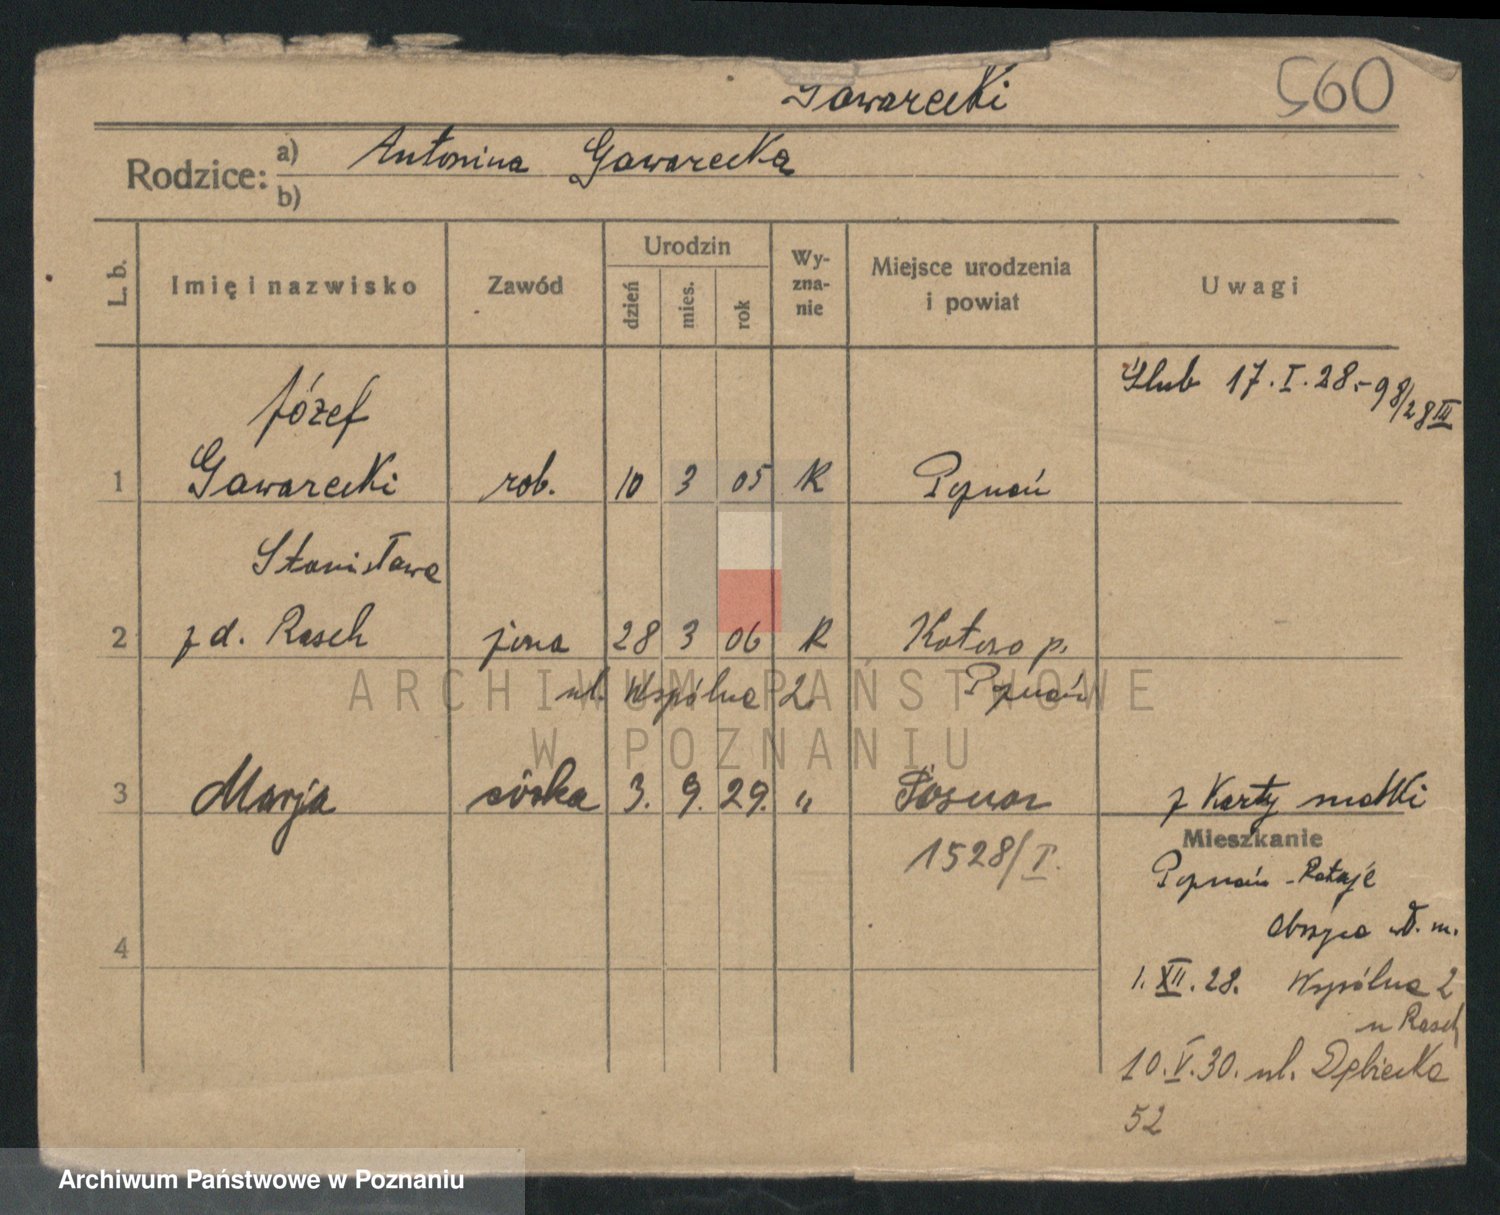 Gawarecki 560
Rodzice: a) Antonina Gawarecka
b)
L. b. Imię i nazwisko Zawód Urodzin dzień mies. rok Wy-zna-nie Miejsce urodzenia i powiat Uwagi
Ślub 17.I.28.-98/28 III
Józef
1 Gawarecki rob. 10 3 05 R Poznań
Stanisława
2 z d. Rasch żona 28 3 06 R Kotowo p.
ul. Wspólna 2. Poznań
ARCHIWUM PAŃSTWOWE
W POZNANIU
3 Marja córka 3. 9. 29. " Poznań z Karty matki
1528/I. Mieszkanie
Poznań - Rataje
4
1.XII.28. Wspólna 2
u Rasch
10.V.30. ul. Dębiecka
52
Archiwum Państwowe w Poznaniu